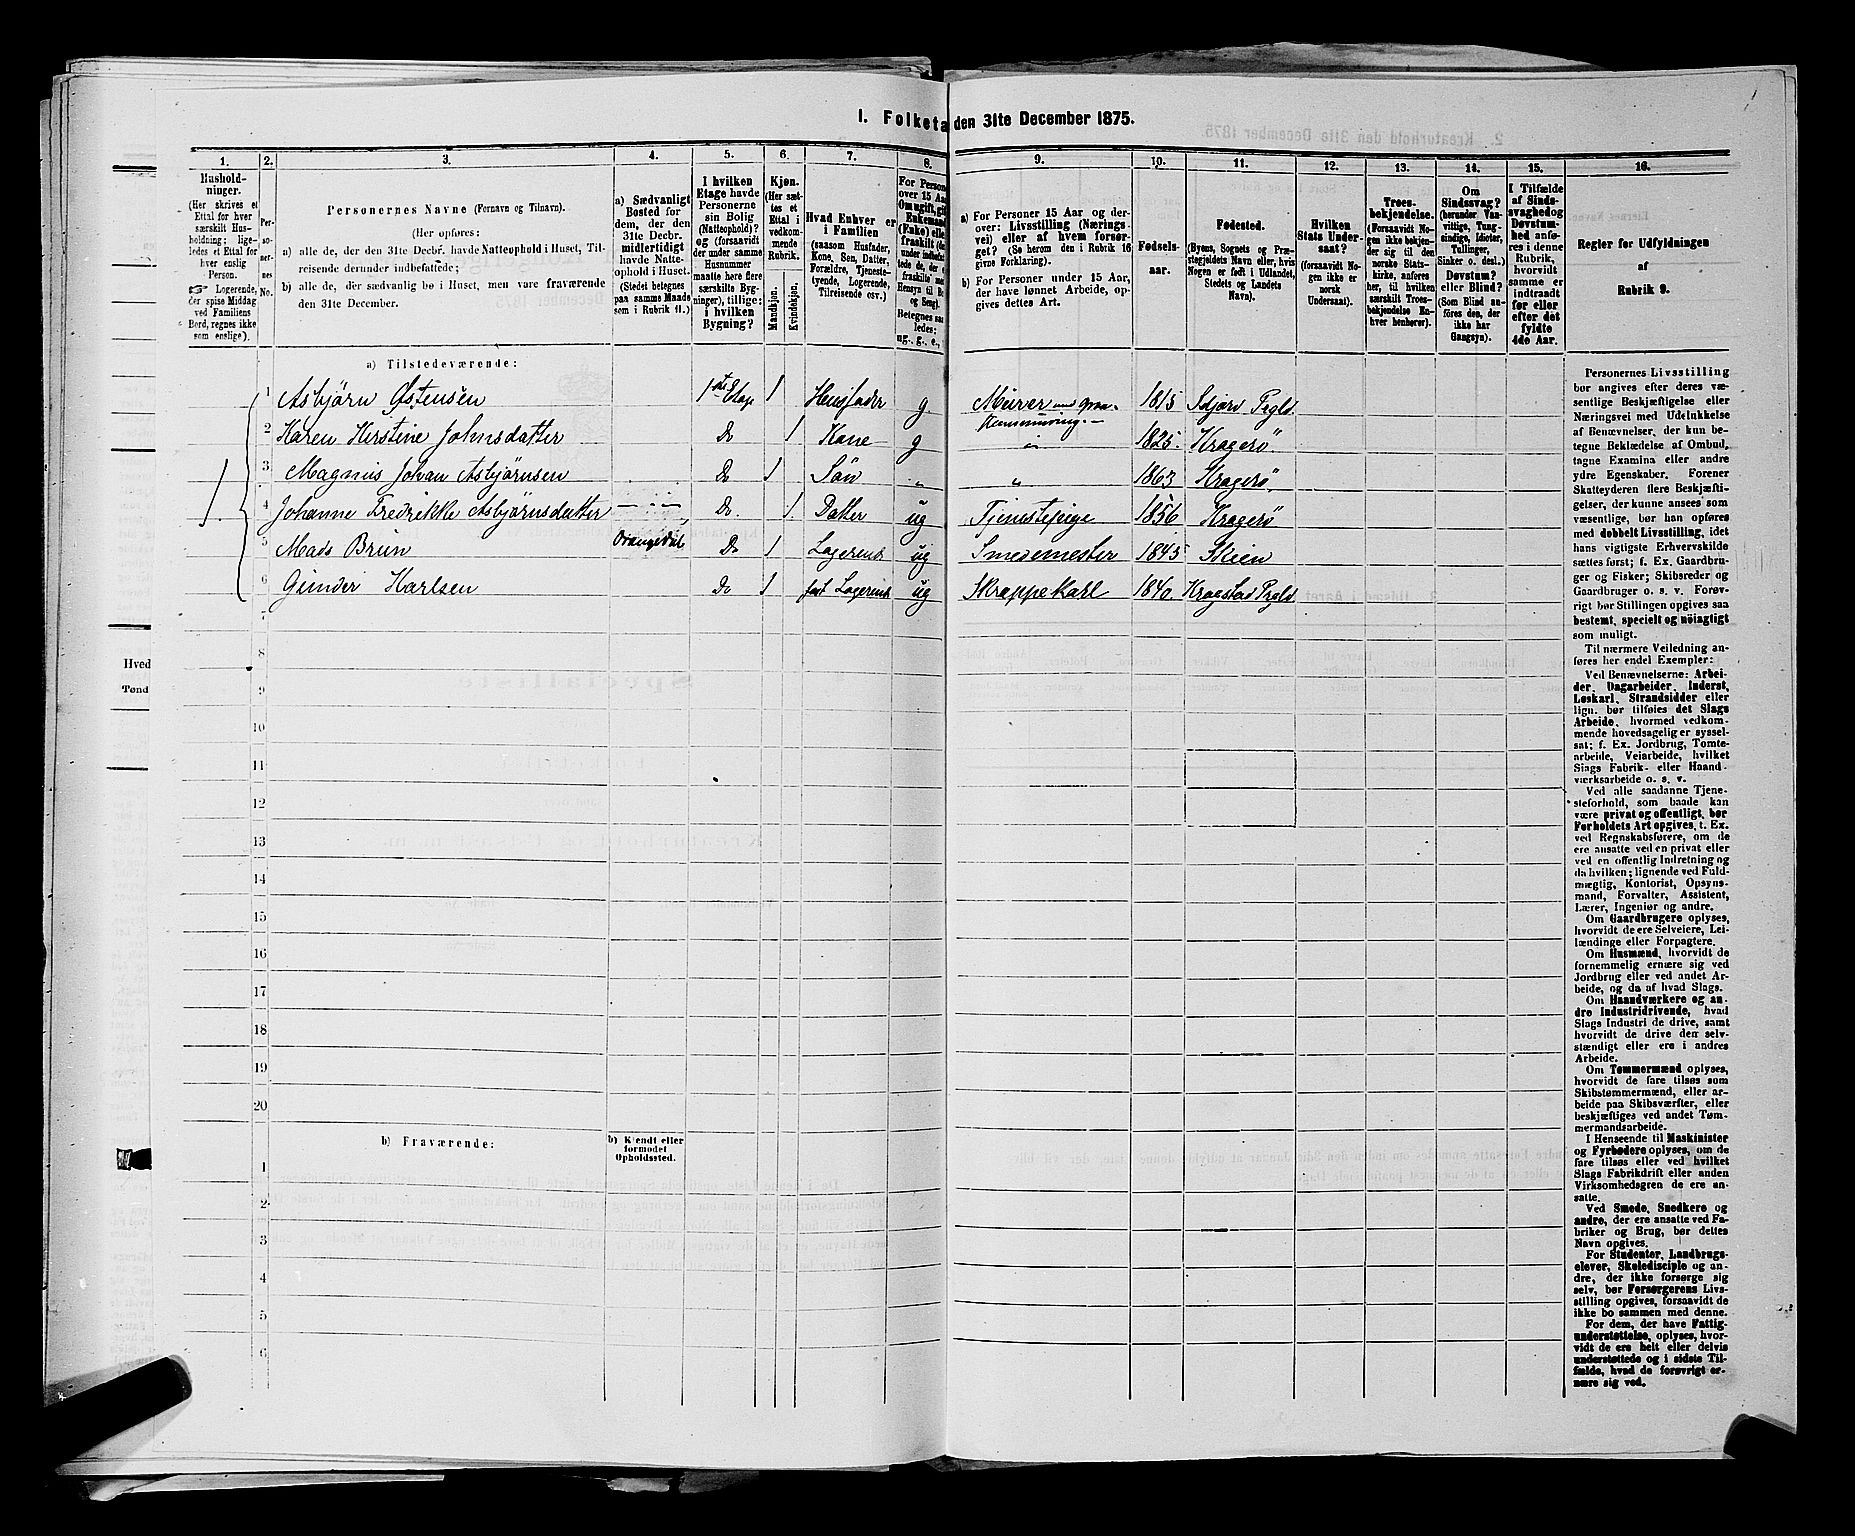 1. Folketa den 31te December 1875.
1. 2. 3. 4. 5. 6. 7. 8. 9. 10. 11. 12. 13. 14. 15. 16.
Hushold-
ninger.
(Her skrives et
Ettal for hver
særskilt Hus-
holdning; lige-
ledes et Ettal for
hver enslig
Person.
☞ Logerende,
der spise Middag
ved Familiens
Bord, regnes ikke
som enslige).
Per-
so-
ner-
nes
No.
Personernes Navne (Fornavn og Tilnavn).
(Her opføres:
a) alle de, der den 31te Decbr. havde Natteophold i Huset, Til-
reisende derunder indbefattede;
b) alle de, der sædvanlig bo i Huset, men vare fraværende
den 31te December.
a) Sædvanligt
Bosted for
dem, der den
31te Decbr.
midlertidigt
havde Natte-
ophold i Huset.
(Stedet betegnes
paa samme Maade
som i Rubrik 11.)
I hvilken
Etage havde
Personerne
sin Bolig
(Natteophold)?
og (forsaavidt
der under samme
Husnummer
maatte here flere
særskilte Byg-
ninger), tillige:
i hvilken
Bygning?
Kjøn.
(Her sæt-
tes et
Ettal i
vedkom-
mende
Rubrik.
Mandkjøn.
Kvindekjøn.
Hvad Enhver er
i Familien
(saasom Husfader,
Kone, Søn, Datter,
Forældre, Tjeneste-
tyende, Logerende,
Tilreisende osv.)
For Persone
over 15 Aar
Om ugift, gif
Enkemand
(Enke) elle
fraskilt
Betegnes saa
ledes:
ug., g., e.,
a) For Personer 15 Aar og der-
over: Livsstilling (Nærings-
vei) eller af hvem forsør-
get? (Se herom den i Rubrik 16
givne Forklaring).
b) For Personer under 15 Aar,
der have lønnet Arbeide, op-
gives dettes Art.
Fødsels-
aar.
Fødested.
(Byens, Sognets og Præ-
stegjeldets Navn eller, hvis
Nogen er født i Udlandet,
Stedets og Landets
Navn).
Hvilken
Stats Under-
saat?
(forsaavidt No-
gen ikke er
norsk
Undersaat).
Troes-
bekjendelse.
(Forsaavidt No-
gen ikke bekjen-
der sig til den
norske Stats-
kirke, anføres
her, til hvilken
særskilt Troes-
bekjendelse En-
hver henhører).
Om
Sindssvag?
(herunder Van-
vittige, Tung-
sindige, Idioter,
Tullinger,
Sinker o. desl.).
Døvstum?
eller Blind?
(Som Blind an-
føres den, der
ikke har
Gangsyn).
I Tilfælde
af Sinds-
svaghed og
Døvstum-
hed anfø-
res i denne
Rubrik,
hvorvidt
samme er
indtraadt
før eller
efter det
fyldte
4de Aar.
Regler for Udfyldningen
af
Rubrik 9.
a) Tilstedeværende:
1 Asbjørn Østensen 1ste Etage 1 Husfader g Murer 1815
2 Karen Kirstine Johnsdatter Do 1 Kone g 1825. Kragerø
3 Magnus Johan Asbjørnsen Do 1 Søn 1863 Kragerø
4 Johanne Fredrikke Asbjørnsdatter Do. 1 Datter ug Tjenestepige 1856 Kragerø
5 Mads Brun Drangedal Do 1 Logerende ug Smedemester 1845 Skien
6 Gunder Karlsen Do 1 fast Logerende ug Skræppekarl 1840. Kragstad Pgld
1
7
8
9
10
11
12
13
14
15
16
17
18
19
20
b) Fraværende:
b) Kjendt eller
formodet
Opholdssted.
1
2
3
4
5
6
Hved
Tønd
Personernes Livsstilling
bør angives efter deres væ-
sentlige Beskjæftigelse eller
Næringsvei med Udelukkelse
af Benævnelser, der kun be-
tegne Beklædelse af Ombud,
tagne Examina eller andre
ydre Egenskaber. Forener
Skatteyderen flere Beskjæfti-
gelser, der kunne ansees som
væsentlige, bør han opføres
med dobbelt Livsstilling, idet
hans vigtigste Erhvervskilde
sættes først; f. Ex. Gaardbru-
ger og Fisker; Skibsreder og
Gaardbruger o. s. v. Forøv-
rigt bør Stillingen opgives saa
bestemt, specielt og nöiagtigt
som muligt.
Til nærmere Veiledning an-
føres her endel Exempler:
Ved Benævnelserne: Arbei-
der, Dagarbeider, Inderst,
Løskarl, Strandsidder eller
lign. bør tilføies det Slags
Arbeide, hvormed vedkom-
mende hovedsagelig er syssel-
sat; f. Ex. Jordbrug, Tomte-
arbeide, Veiarbeide, hvilket
Slags Fabrik- eller Haand-
værksarbeide o. s. v.
Ved alle saadanne Tjene-
steforhold, som baade kan
være privat og offentligt, bør
Forholdets Art opgives, t. Ex.
ved Regnskabsførere, om de
ere ansatte ved en privat eller
ved en offentlig Indretning og
da hvilken; lignende ved Fuld-
mægtig, Kontorist, Opsyns-
mand, Forvalter, Assistent,
Lærer, Ingeniør og andre.
Om Gaardbrugere oplyses,
hvorvidt de ere Selveiere, Lei-
lændinge eller Forpagtere.
Om Husmænd, hvorvidt de
fornemmelig ernære sig ved
Jordbrug eller ved andet Ar-
beide, og da af hvad Slags.
Om Haandværkere og an-
dre Industridrivende, hvad
Slags Industri de drive, samt
hvorvidt de drive den selv-
stændigt eller ere i andres
Arbeide.
Om Tømmermænd oplyses,
hvorvidt de fare tilsøs som
Skibstømmermænd, eller ar-
beide paa Skibsværfter, eller
beskjæftiges ved andet Tøm-
mermandsarbeide.
I Henseende til Maskinister
og Fyrbødere oplyses, om de
fare tilsøs eller ved hvilket
Slags Fabrikdrift eller anden
Virksomhedsgren de ere an-
satte.
Ved Smede, Snedkere og
andre, der ere ansatte ved Fa-
briker og Brug, bør dettes
Navn opgives.
For Studenter, Landbrugs-
elever, Skoledisciple og an-
dre, der ikke forsørge sig
selv, bør Forsørgerens Livs-
stilling opgives, forsaavidt de
ikke bo sammen med denne.
For dem, der have Fattig-
understøttelse, oplyses, hvor-
vidt de ere helt eller delvis
understøttede og i sidste Til-
fælde, hvad de forøvrigt er-
nære sig ved.